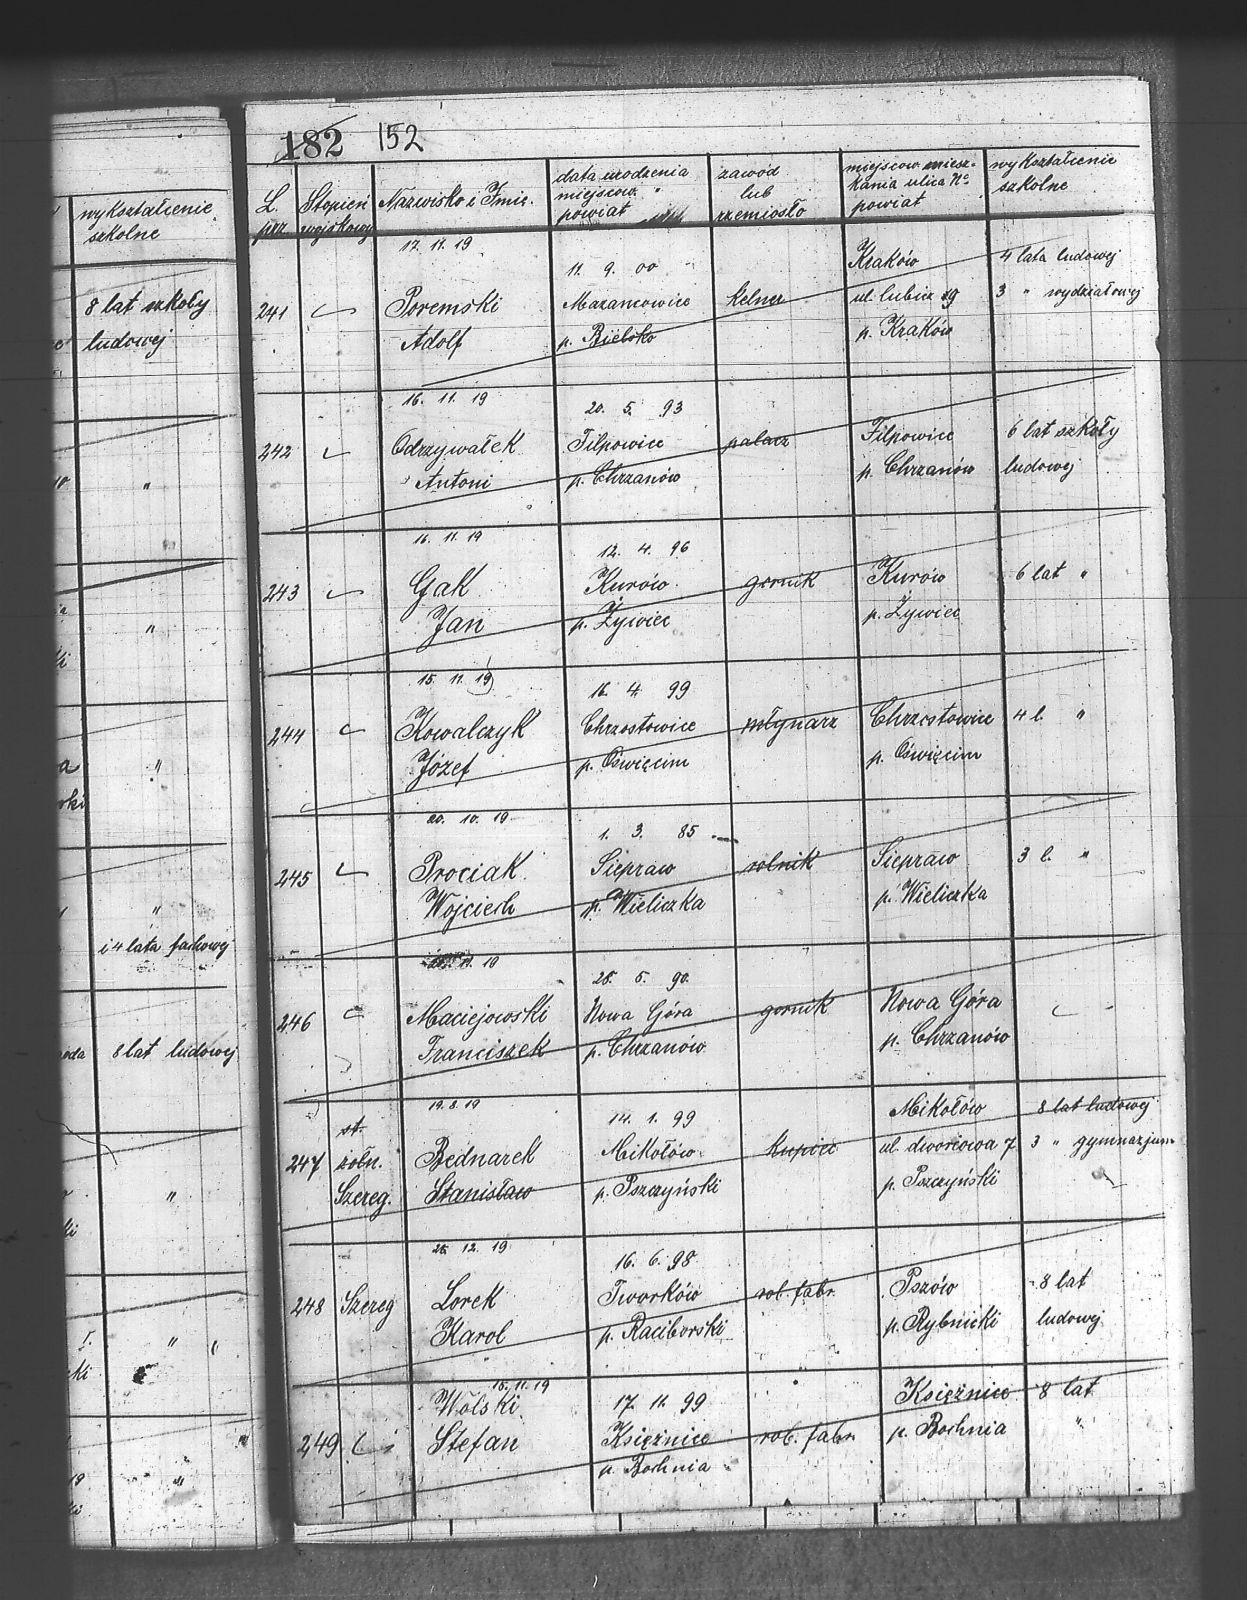 wykształcenie
szkolne
8 lat szkoły
ludowej
"
"
"
"
i 4 lata fachowej
8 lat ludowej
"
"
"
182 152
L.
prz.
Stopień
wojskowy
Nazwisko i Imię.
data urodzenia
miejscow. "
powiat
zawód
lub
rzemiosło
miejscow. miesz-
kania ulica No
powiat
wykształcenie
szkolne
17. 11. 19
241
Poremski
Adolf
11. 9. 00
Mazancowice
p. Bielsko
kelner
Kraków
ul. Lubicz 29
p. Kraków
4 lata ludowej
3 " wydziałowej
16. 11. 19
242
Odrzywałek
Antoni
20. 5. 93
Filpowice
p. Chrzanów
palacz
Filpowice
p. Chrzanów
6 lat szkoły
ludowej
16. 11. 19
243
Gak
Jan
12. 4. 96
Kurów
p. Żywiec
gornik
Kurów
p. Żywiec
6 lat "
15. 11. 19
244
Kowalczyk
Józef
16. 4. 99
Chrzostowice
p. Oświęcim
młynarz
Chrzostowice
p. Oświęcim
4 l. "
20. 10. 19
245
Prociak
Wojciech
1. 3. 85
Siepraw
p. Wieliczka
rolnik
Siepraw
p. Wieliczka
3 l. "
11. 19
246
Maciejowski
Franciszek
28. 5. 90.
Nowa Góra
p. Chrzanów
gornik
Nowa Góra
p. Chrzanów
19. 8. 19
247
st.
żołn.
Szereg.
Bednarek
Stanisław
14. 1. 99
Mikołów
p. Pszczyński
kupiec
Mikołów
ul. dworcowa 7
p. Pszczyński
8 lat ludowej
3 " gymnazjum
12. 19
248
Szereg
Lorek
Karol
16. 6. 98
Tworków
p. Raciborski
rob. fabr.
Pszów
p. Rybnicki
8 lat
ludowej
18. 11. 19
249
Wolski
Stefan
17. 11. 99
Księżnice
p. Bochnia
rob. fabr.
Księżnice
p. Bochnia
8 lat
"